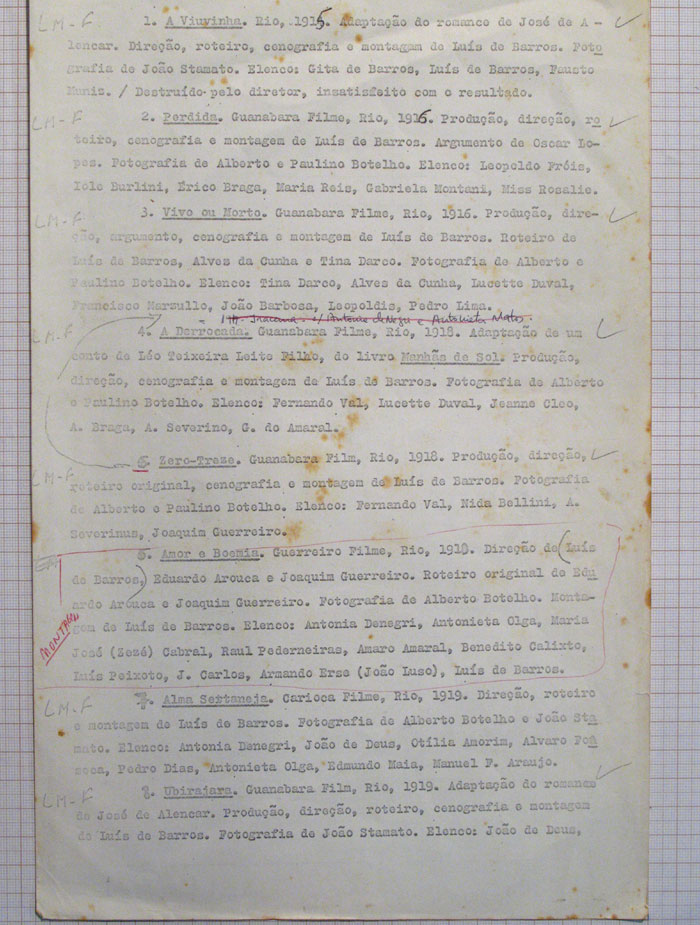 LM-F
1. A Viuvinha. Rio, 1915. Adaptação do romance de José de A-
lencar. Direção, roteiro, cenografia e montagem de Luís de Barros. Foto
grafia de João Stamato. Elenco: Gita de Barros, Luís de Barros, Fausto
Muniz. / Destruído pelo diretor, insatisfeito com o resultado.
LM-F
2. Perdida. Guanabara Filme, Rio, 1916. Produção, direção, ro
teiro, cenografia e montagem de Luís de Barros. Argumento de Oscar Lo-
pes. Fotografia de Alberto e Paulino Botelho. Elenco: Leopoldo Fróis,
Iole Burlini, Érico Braga, Maria Reis, Gabriela Montani, Miss Rosalie.
LM-F
3. Vivo ou Morto. Guanabara Filme, Rio, 1916. Produção, dire-
ção, argumento, cenografia e montagem de Luís de Barros. Roteiro de
Luís de Barros, Alves da Cunha e Tina Darco. Fotografia de Alberto e
Paulino Botelho. Elenco: Tina Darco, Alves da Cunha, Lucette Duval,
Francisco Marzullo, João Barbosa, Leopoldis, Pedro Lima.
LM-F
4. A Derrocada. Guanabara Filme, Rio, 1918. Adaptação de um
conto de Léo Teixeira Leite Filho, do livro Manhãs de Sol. Produção,
direção, cenografia e montagem de Luís de Barros. Fotografia de Alberto
e Paulino Botelho. Elenco: Fernando Val, Lucette Duval, Jeanne Cleo,
A. Braga, A. Severino, G. do Amaral.
LM-F
5. Zero-Treze. Guanabara Film, Rio, 1918. Produção, direção,
roteiro original, cenografia e montagem de Luís de Barros. Fotografia
de Alberto e Paulino Botelho. Elenco: Fernando Val, Nida Bellini, A.
Severinus, Joaquim Guerreiro.
6. Amor e Boemia. Guerreiro Filme, Rio, 1918. Direção de (Luís
de Barros,) Eduardo Arouca e Joaquim Guerreiro. Roteiro original de Edu
ardo Arouca e Joaquim Guerreiro. Fotografia de Alberto Botelho. Monta-
gem de Luís de Barros. Elenco: Antonia Denegri, Antonieta Olga, Maria
José (Zezé) Cabral, Raul Pederneiras, Amaro Amaral, Benedito Calixto,
Luís Peixoto, J. Carlos, Armando Erse (João Luso), Luís de Barros.
LM-F
7. Alma Sertaneja. Carioca Filme, Rio, 1919. Direção, roteiro
e montagem de Luís de Barros. Fotografia de Alberto Botelho e João Sta
mato. Elenco: Antonia Denegri, João de Deus, Otília Amorim, Alvaro Fon
seca, Pedro Dias, Antonieta Olga, Edmundo Maia, Manuel F. Araujo.
LM-F
8. Ubirajara. Guanabara Film, Rio, 1919. Adaptação do romance
de José de Alencar. Produção, direção, roteiro, cenografia e montagem
de Luís de Barros. Fotografia de João Stamato. Elenco: João de Deus,